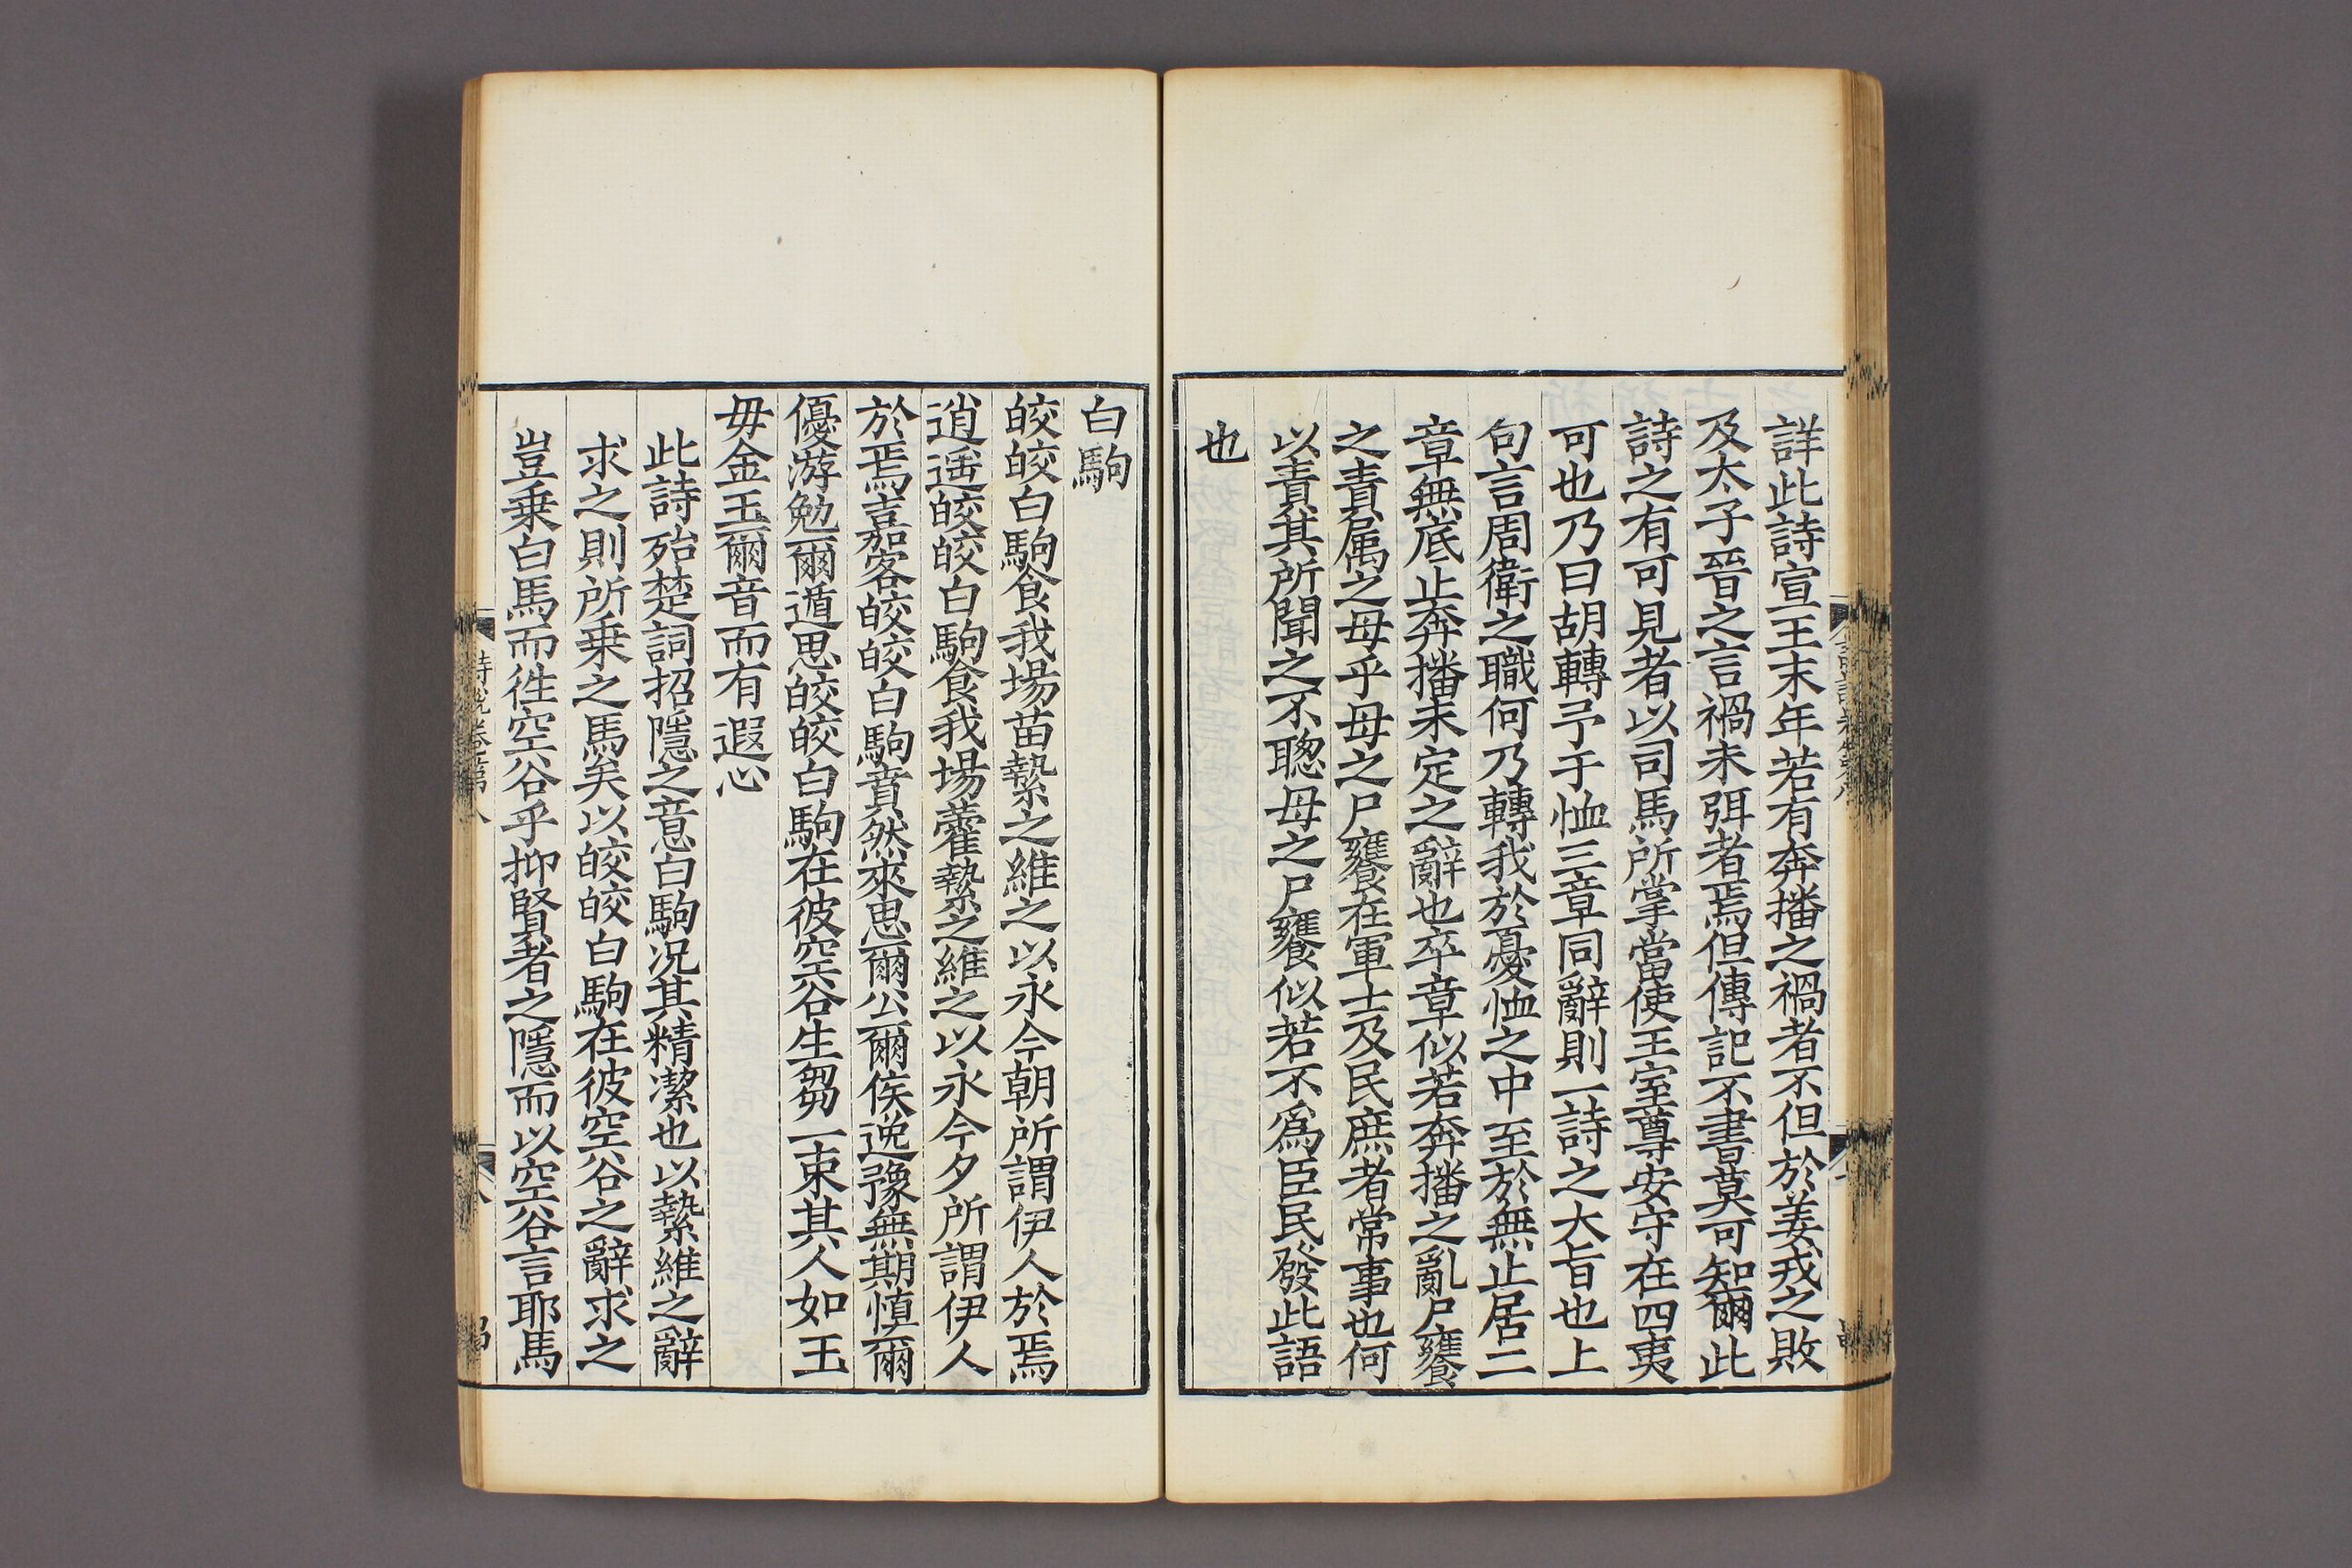 詳此詩宣王末年若有奔播之禍者不但於姜戎之敗
及太子晉之言禍未弭者焉但傳記不書莫可知爾此
詩之有可見者以司馬所掌當使王室尊安守在四夷
可也乃曰胡轉予于恤三章同辭則一詩之大旨也上
句言周衛之職何乃轉我於憂恤之中至於無止居二
章無底止奔播未定之辭也卒章似若奔播之亂尸饔
之責属之母乎母之尸饔在軍士及民庶者常事也何
以責其所聞之不聦母之尸饔似若不為臣民發此語
也
白駒
皎皎白駒食我場苗縶之維之以永今朝所謂伊人於焉
逍遥皎皎白駒食我場藿縶之維之以永今夕所謂伊人
於焉嘉客皎皎白駒賁然來思爾公爾侯逸豫無期慎爾
優游勉爾遁思皎皎白駒在彼空谷生芻一束其人如玉
毋金玉爾音而有遐心
此詩殆楚詞招隱之意白駒况其精潔也以縶維之辭
求之則所乗之馬矣以皎皎白駒在彼空谷之辭求之
豈乗白馬而徃空谷乎抑賢者之隱而以空谷言耶馬
詩說卷第八
八